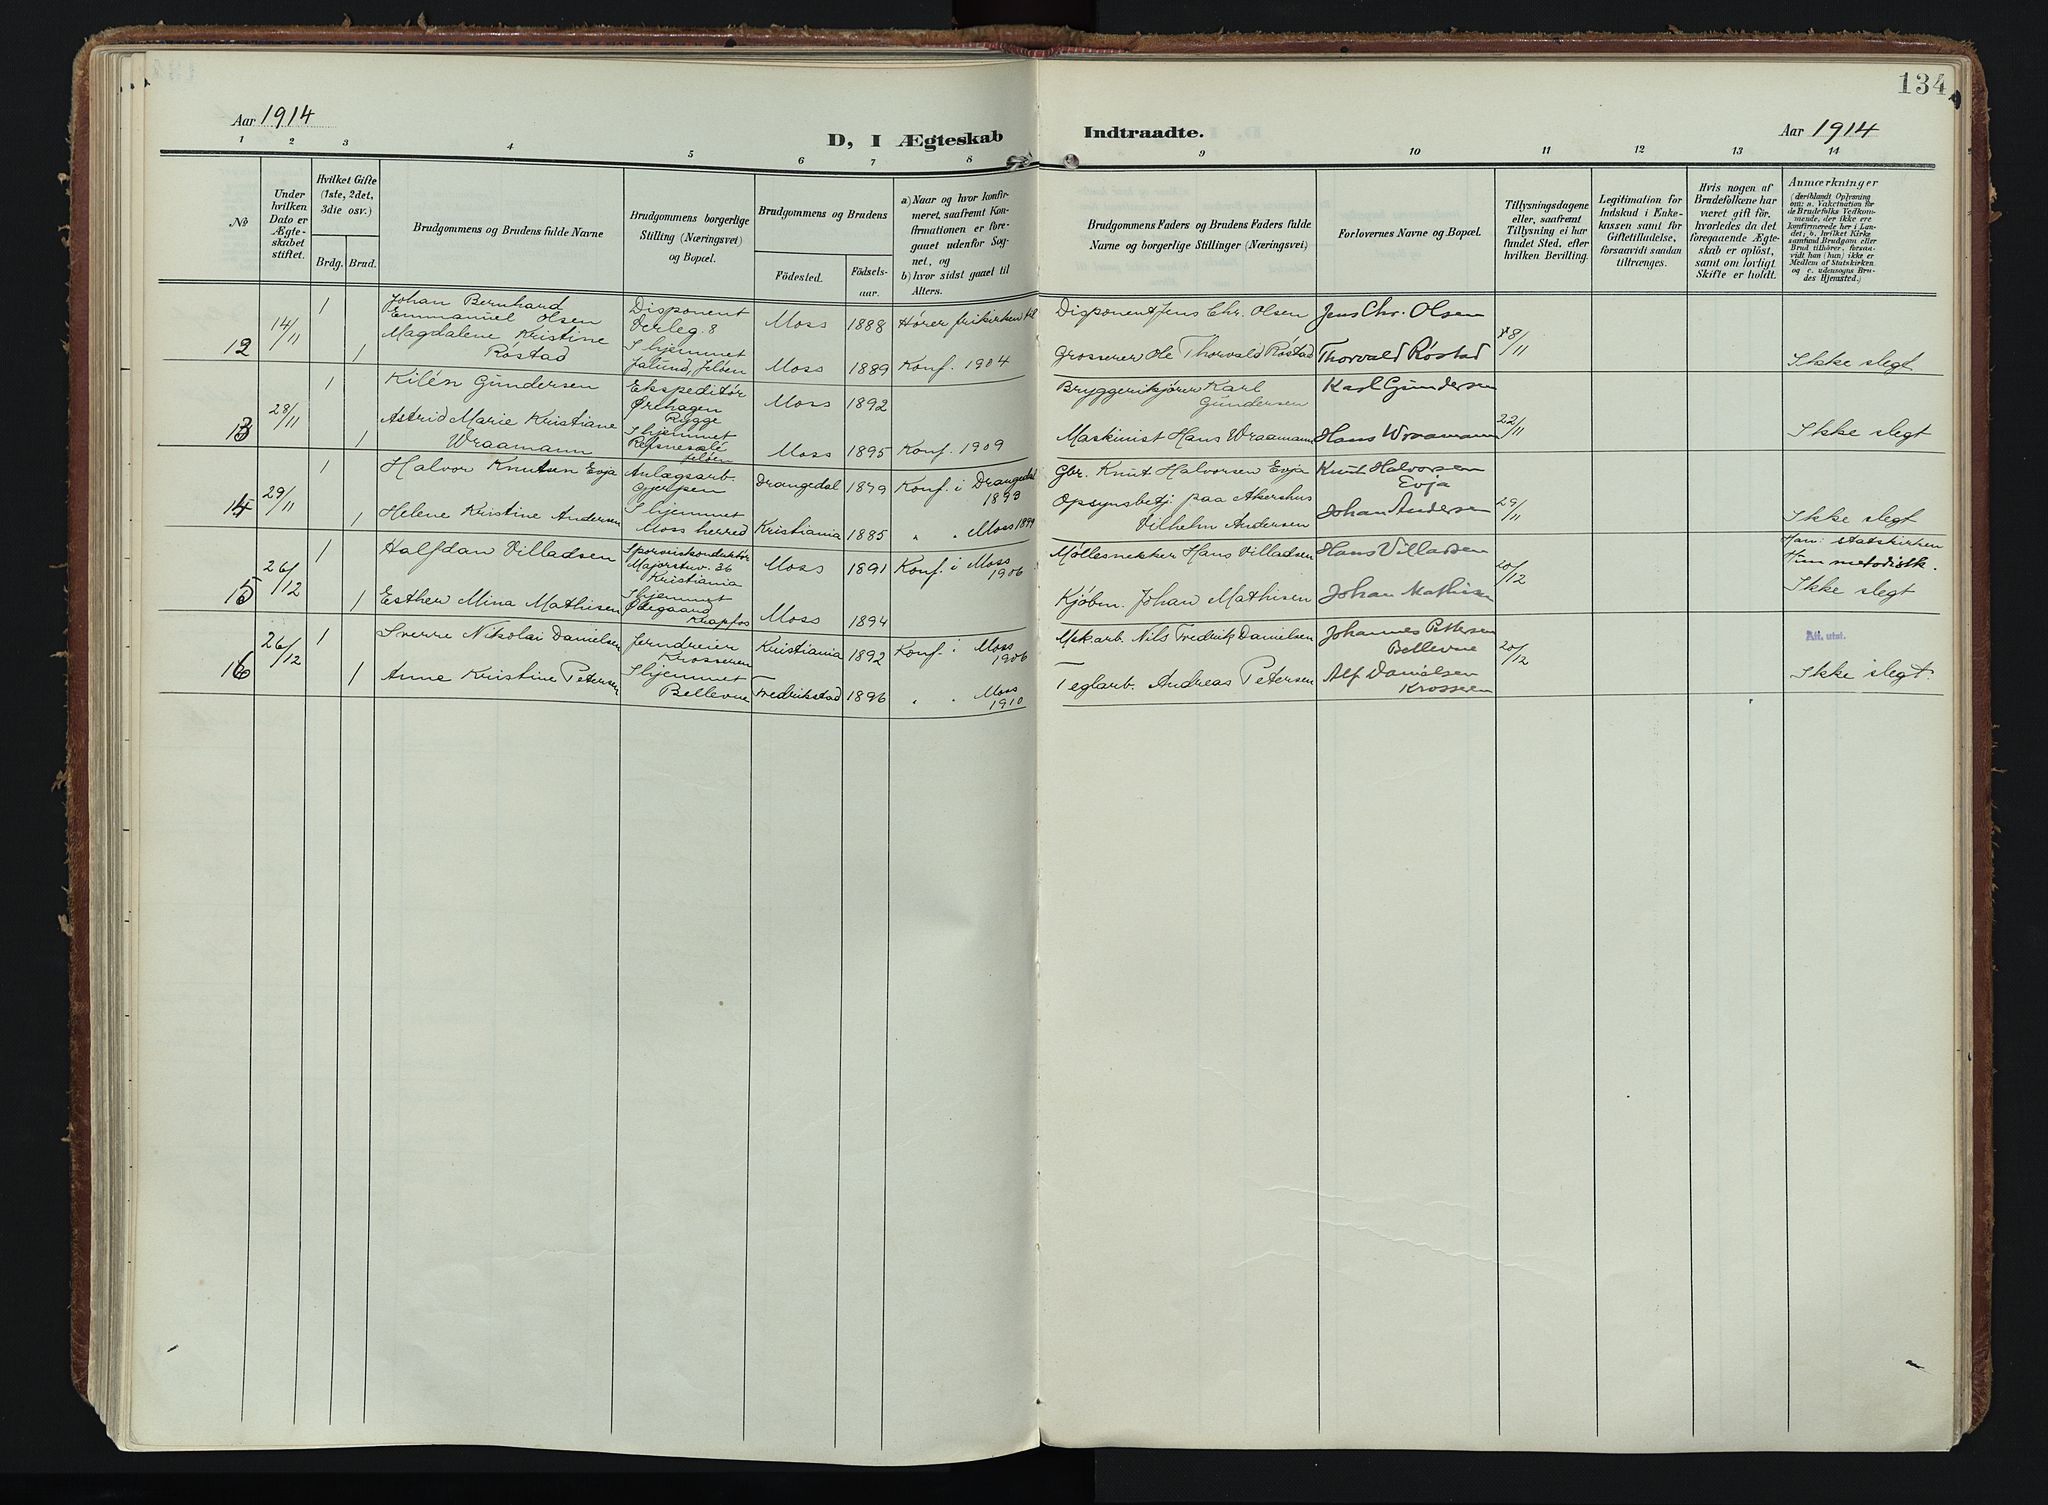 134
Aar 1914
D, I Ægteskab
Indtraadte.
Aar 1914
1 2 3 4 5 6 7 8 9 10 11 12 13 14
No
Under
hvilken
Dato er
Ægte-
skabet
stiftet.
Hvilket Gifte
(1ste, 2det,
3die osv.)
Brdg. Brud.
Brudgommens og Brudens fulde Navne
Brudgommens borgerlige
Stilling (Næringsvei)
og Bopæl.
Brudgommens og Brudens
Födested.
Födsels-
aar.
a) Naar og hvor konfir-
meret, saafremt Kon-
firmationen er fore-
gaaet udenfor Sog-
net, og
b) hvor sidst gaaet til
Alters.
Brudgommens Faders og Brudens Faders fulde
Navne og borgerlige Stillinger (Næringsvei)
Forlovernes Navne og Bopæl.
Tillysningsdagene
eller, saafremt
Tillysning ei har
fundet Sted, efter
hvilken Bevilling.
Legitimation for
Indskud i Enke-
kassen samt for
Giftetilladelse,
forsaavidt saadan
tiltrænges.
Hvis nogen af
Brudefolkene har
været gift för,
hvorledes da det
foregaaende Ægte-
skab er oplöst,
samt om lovligt
Skifte er holdt.
Anmærkninger
(deriblandt Oplysning
om: a. Vakcination for
de Brudefolks Vedkom-
mende, der ikke ere
konfirmerede her i Lan-
det; b. hvilket Kirke
samfund Brudgom eller
Brud tilhörer, forsaa-
vidt han (hun) ikke er
Medlem af Statskirken
og c. udensogns Bru-
des Hjemsted.)
12
14/11
1
Johan Bernhard
Emmanuel Olsen
Disponent
Verleg. 8
Moss 1888 Hører frikirken til
Disponent Jens Chr. Olsen
Jens Chr. Olsen
8/11
1
Magdalene Kristine
Röstad
I hjemmet
Jalund, Jeløen
Moss 1889 Konf. 1904
Grosserer Ole Thorvald Röstad
Thorvald Röstad
Ikke slegt
13
28/11
1
Kilén Gundersen
Ekspeditør
Ørehagen
Rygge
Moss 1892
Bryggerikjører Karl
Gundersen
Karl Gundersen
22/11
1
Astrid Marie Kristiane
Wraamann
I hjemmet
Refsnesalé
Jeløen
Moss 1895 Konf. 1909
Maskinist Hans Wraamann
Hans Wraamann
Ikke slegt
14
29/11
1
Halvor Knutsen Evja
Anlægsarb.
Gjerpen
Drangedal 1879 Konf. i Drangedal
1893
Gbr. Knut Halvorsen Evja
Knut Halvorsen
Evja
29/11
1
Helene Kristine Andersen
I hjemmet
Moss herred
Kristiania 1885 " " Moss 1899
Opsynsbetj. paa Akershus
Vilhelm Andersen
Johan Andersen
Ikke slegt
15
26/12
1
Halfdan Villadsen
Sporveiskonduktør
Majorstuv. 36
Kristiania
Moss 1891 Konf. i Moss
1906
Møllesnekker Hans Villadsen
Hans Villadsen
20/12
Han: statskirken
Hun metodistk.
1
Esther Mina Mathisen
I hjemmet
Ødegaard
Krapfos
Moss 1894
Kjøbm. Johan Mathisen
Johan Mathisen
Ikke slegt
16
26/12
1
Sverre Nikolai Danielsen
Jerndreier
Krosseren
Kristiania 1892 Konf. i Moss
1906
Mek. arb. Nils Fredrik Danielsen
Johannes Pettersen
Bellevue
20/12
Att. utst.
1
Anne Kristine Petersen
I hjemmet
Bellevue
Fredrikstad 1896 " " Moss
1910
Teglarb. Andreas Petersen
Alf Danielsen
Krosseren
Ikke slegt.